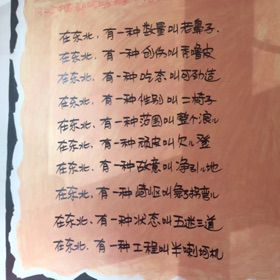 在东北、有一种数量叫老鼻子.
在东北、有一种创伤叫秃噜皮
在东北、有一种吃态叫可劲造
在东北、有一种性别叫二椅子
在东北、有一种范围叫整个浪儿
在东北、有一种顽皮叫欠儿登
在东北、有一种故意叫净引儿地
在东北、有一种崎岖叫急了拐弯儿
在东北、有一种状态叫五迷三道
在东北、有一种工程叫半喇坷机